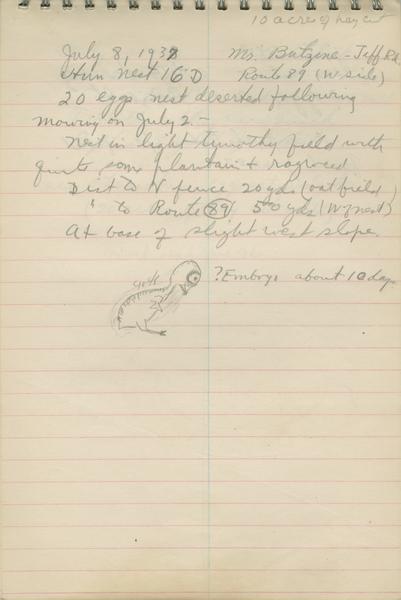 10 acre of hay cut
July 8, 1938 Mr. Butzine - Jeff Rd.
Hun Nest 16 D Route 89 (W side)
20 eggs nest deserted following
mowing on July 2 -
Nest in light timothy field with
quite some plantain & ragweed
Dist to N fence 20 yds (oat field)
" to Route 89 50 yds (W of nest)
At base of slight west slope.
? Embryo about 10 days